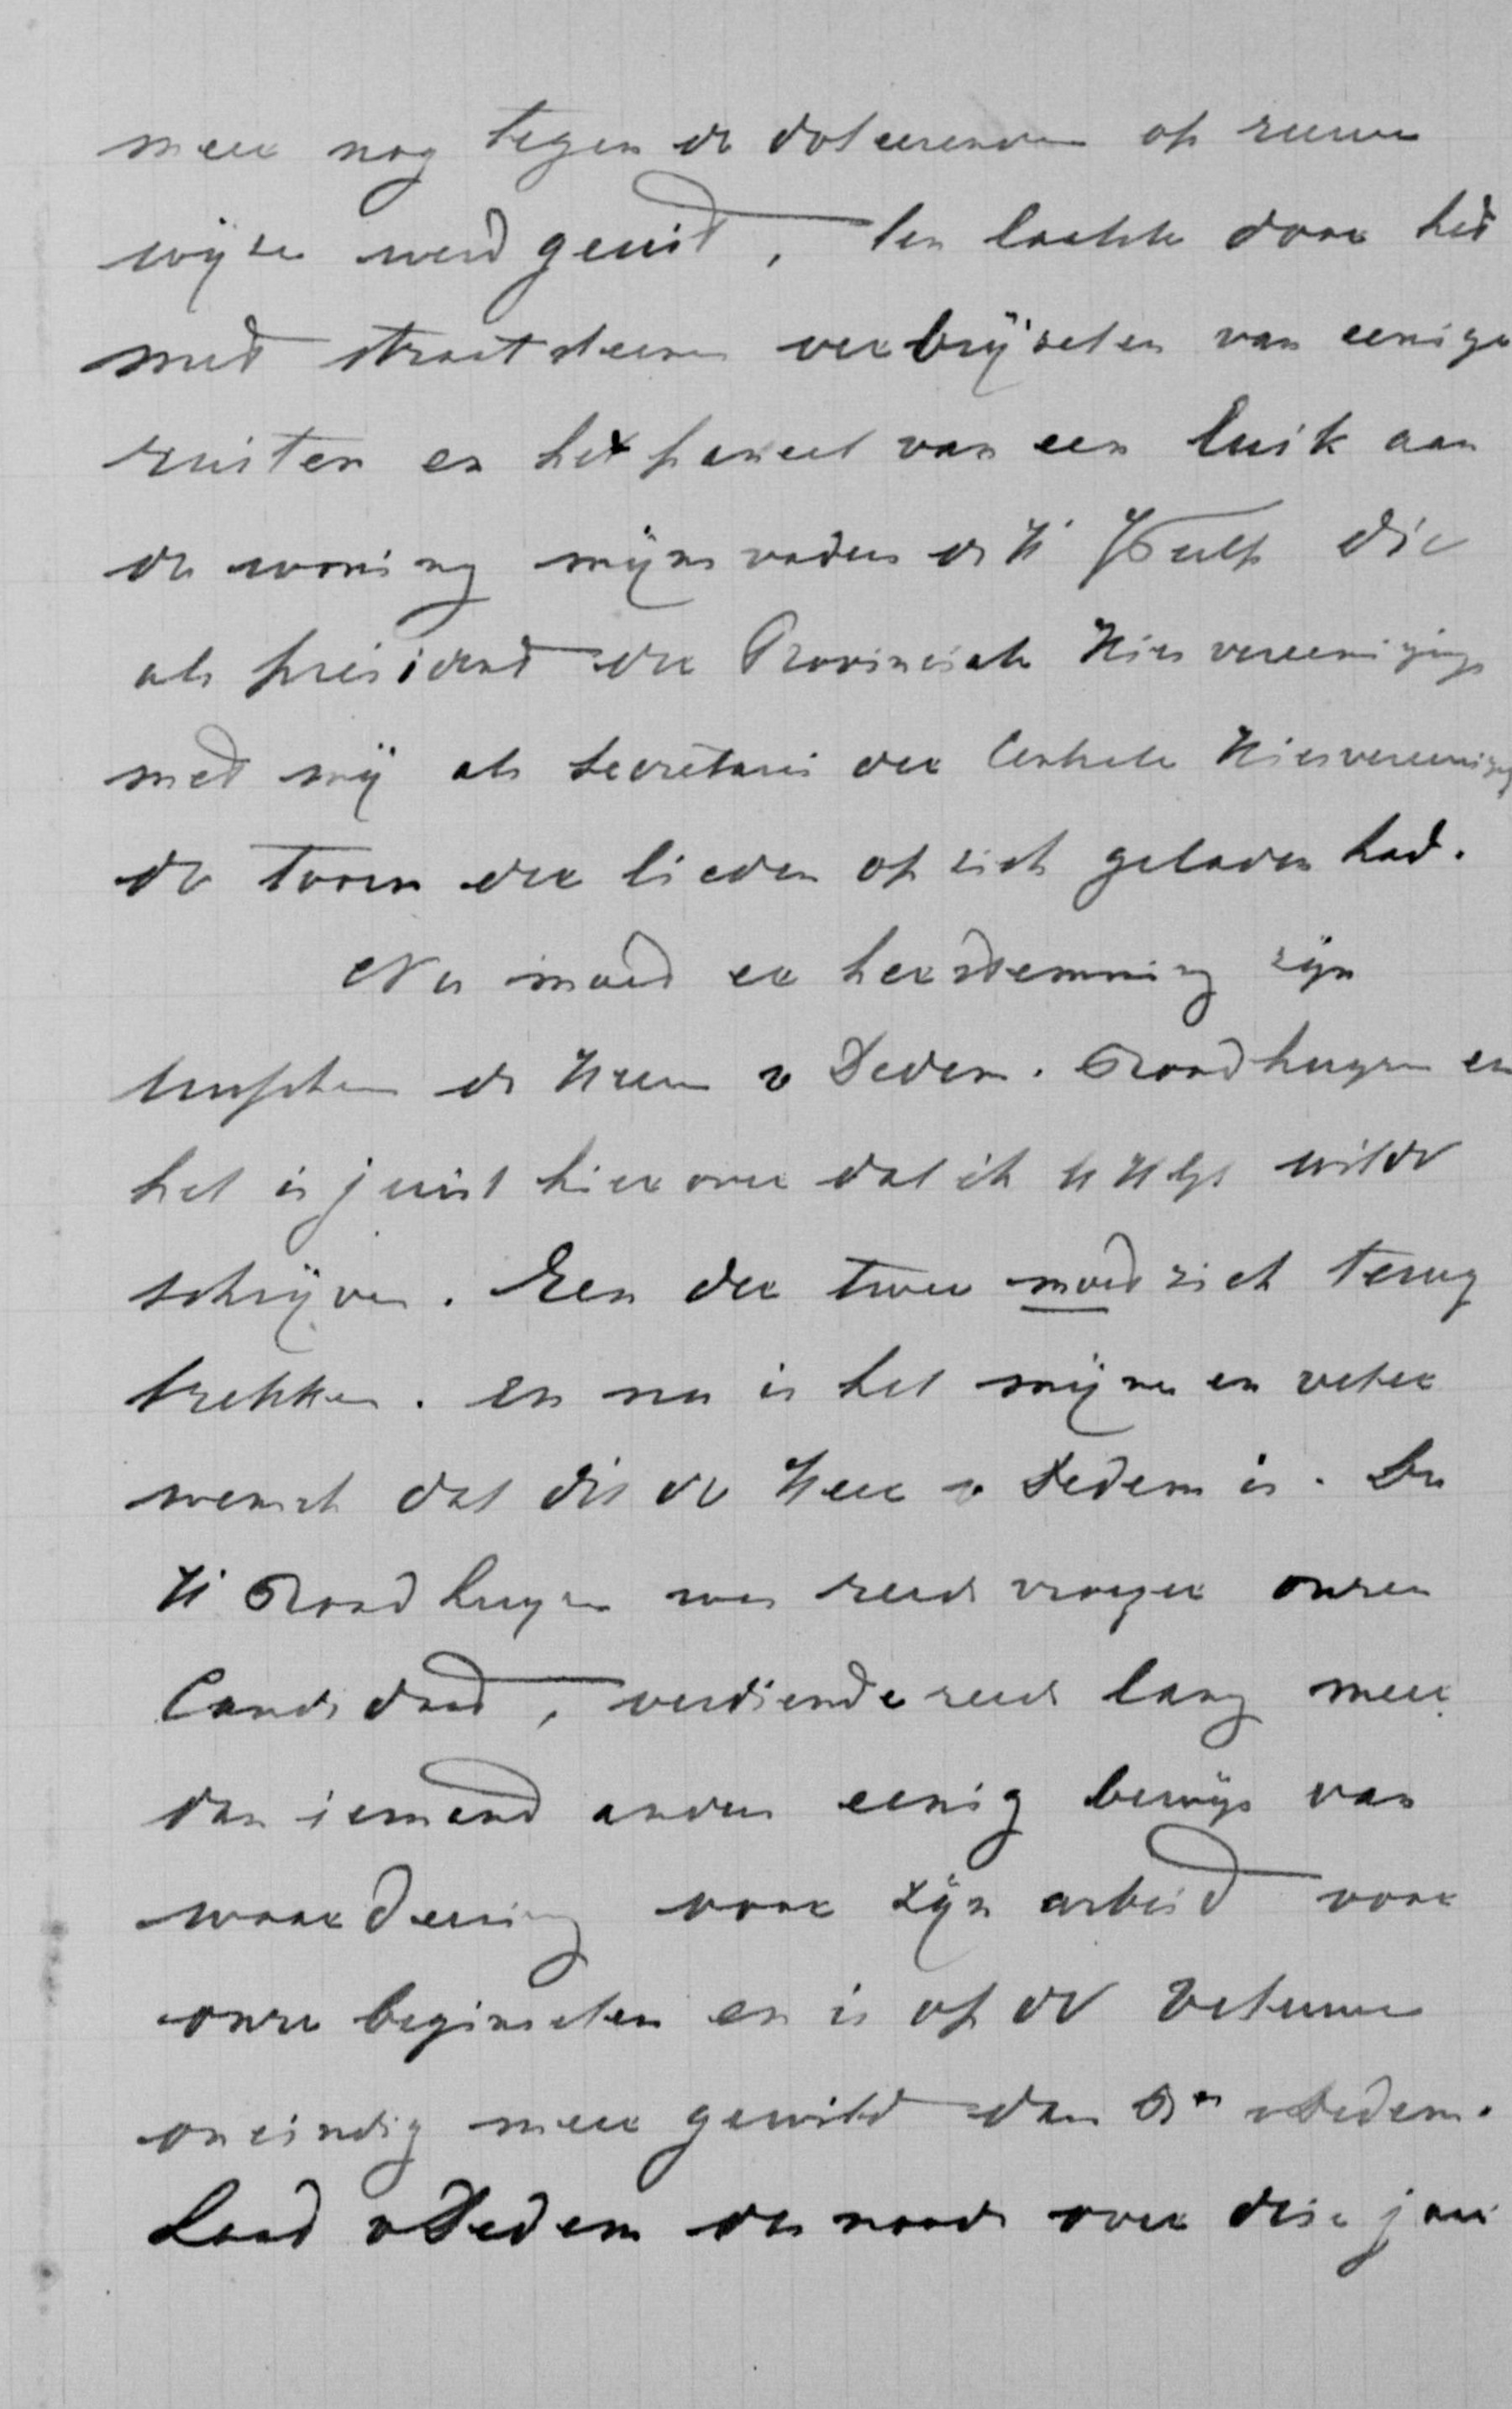 meer nog tegen de doleerenden op ruwe
wijze werd geuit, ten laatste door het
met straatsteenen verbrijzelen van eenige
ruiten en het paneel van een luik aan
de woning mijns vaders de Hr die
als president der Provinciale Kiesvereeniging
met mij als secretaris der Centrale Kiesvereeniging
de toorn der lieden op zich geladen had.
Nu moet er herstemming zijn
tusschen de Heeren v Dedem. Roodhuyzen en
het is juist hierover dat ik UHgt wilde
schrijven. Een der twee moet zich terug
trekken. en nu is het mijne en veler
wensch dat dit de Heer v Dedem is. De
Hr Roodhuyzen was reeds vroeger onzen
Candidaat, verdiende reeds lang meer
dan iemand anders eenig bewijs van
waardeering voor zijn arbeid voor
onze beginselen en is op de Veluwe
oneindig meer gewild dan Bn v Dedem.
Laat v Dedem des noods over drie jaar